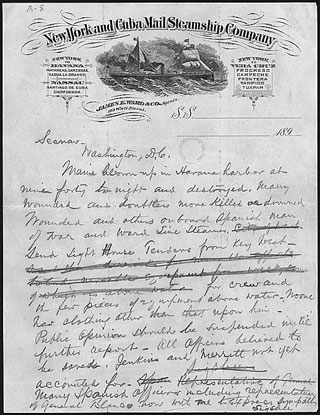 A-8
New York and Cuba Mail Steamship Company
NEW YORK
HAVANA
MATANZAS, CARDENAS,
SAGUA LA GRANDE
NASSAU
SANTIAGO DE CUBA
CIENFUEGOS.
NEW YORK
VERA CRUZ
PROGRESO
CAMPECHE
FRONTERA
TAMPICO
TUXPAM
JAMES E. WARD & CO. Agents,
113 Wall Street.
S.S.
189
Secnav
Washington, D.C.
Maine blown up in Havana harbor at
nine forty to night and destroyed. Many
wounded and doubtless more killed or drowned
Wounded and others on board Spanish man
of war and Ward Line Steamer.
Send Light House Tenders from Key West
for crew and
the few pieces of equipment above water - No one
has clothing other than that upon him
Public opinion should be suspended until
further report - All officers believed to
be saved. Jenkins and Merritt not yet
accounted for - Representative of
Many Spanish officers including representatives
of General Blanco now with me to express sympathy
Sigsbee